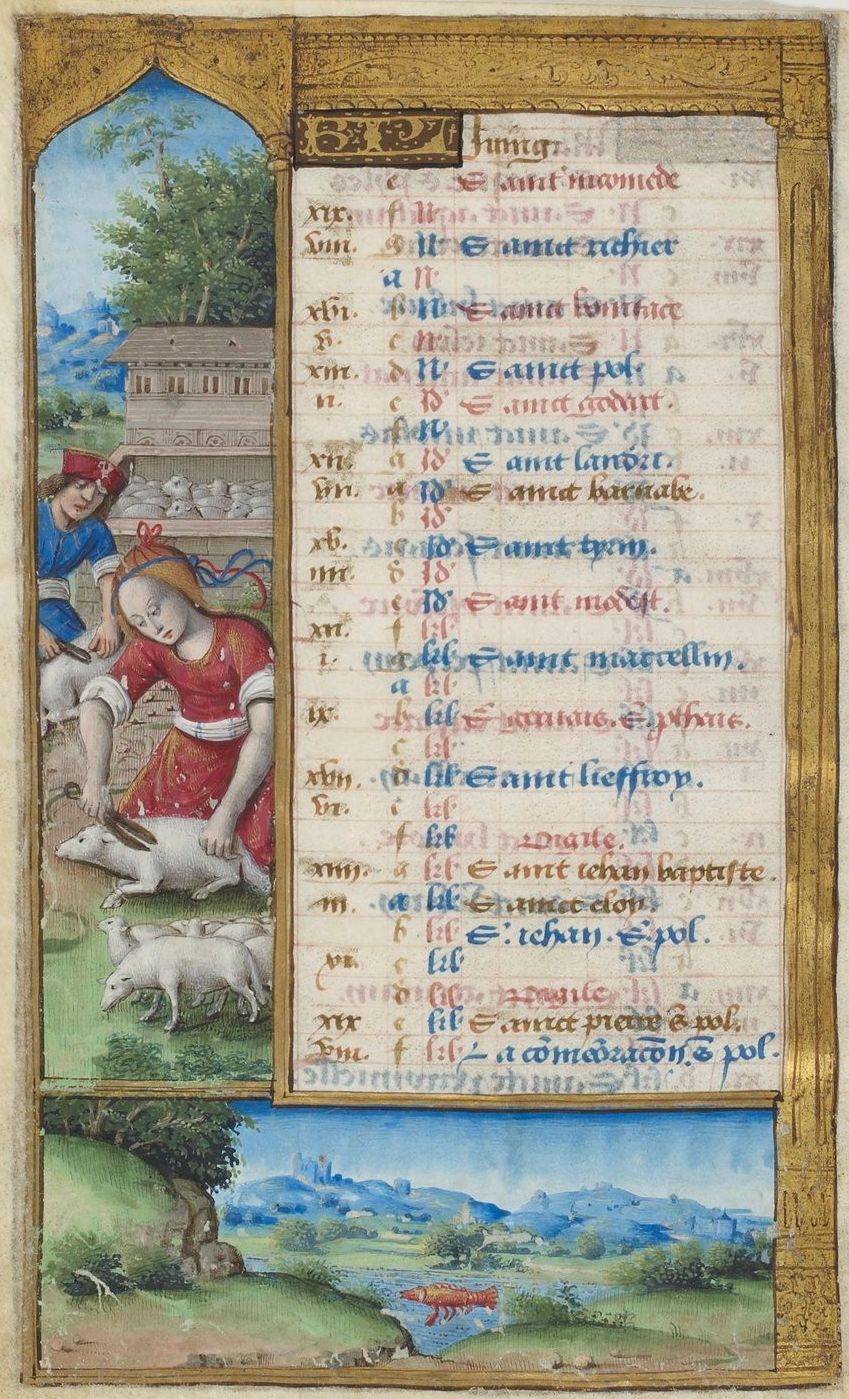 KL Juing.
e Saint nicomede
xix. f N
viii. g N Sainct richier
a N
xvi. b N Sainct boniface
v. c N
xiii. d N Sainct pol.
ii. e Id Sainct godart.
f N
x. g Id Saint landri.
a Id Sainct barnabe.
b Id
xv. c Id Sainct cyrin.
iiii. d Id
e Id Saint modest.
xii. f kl
i. g kl Saint marcellin.
a kl
ix. b kl S. geruais. S. pthais.
c kl
xvii. d kl Saint lieffroy.
vi. e kl
f kl Vigile.
xiiii. g kl Saint iehan baptiste.
iii. a kl Sainct eloy.
b kl S. iehan. S. pol.
xi. c kl
d kl Vigile
xix e kl Sainct pierre & pol.
viii. f kl La cōmeōracōn. S. pol.